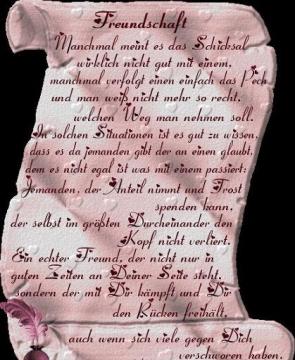 Freundschaft
Manchmal meint es das Schicksal
wirklich nicht gut mit einem,
manchmal verfolgt einen einfach das Pech
und man weiß nicht mehr so recht,
welchen Weg man nehmen soll.
In solchen Situationen ist es gut zu wissen,
dass es da jemanden gibt der an einen glaubt,
dem es nicht egal ist was mit einem passiert:
Jemanden, der Anteil nimmt und Trost
spenden kann,
der selbst im größten Durcheinander den
Kopf nicht verliert.
Ein echter Freund, der nicht nur in
guten Zeiten an Deiner Seite steht,
sondern der mit Dir kämpft und Dir
den Rücken freihält,
auch wenn sich viele gegen Dich
verschworen haben.